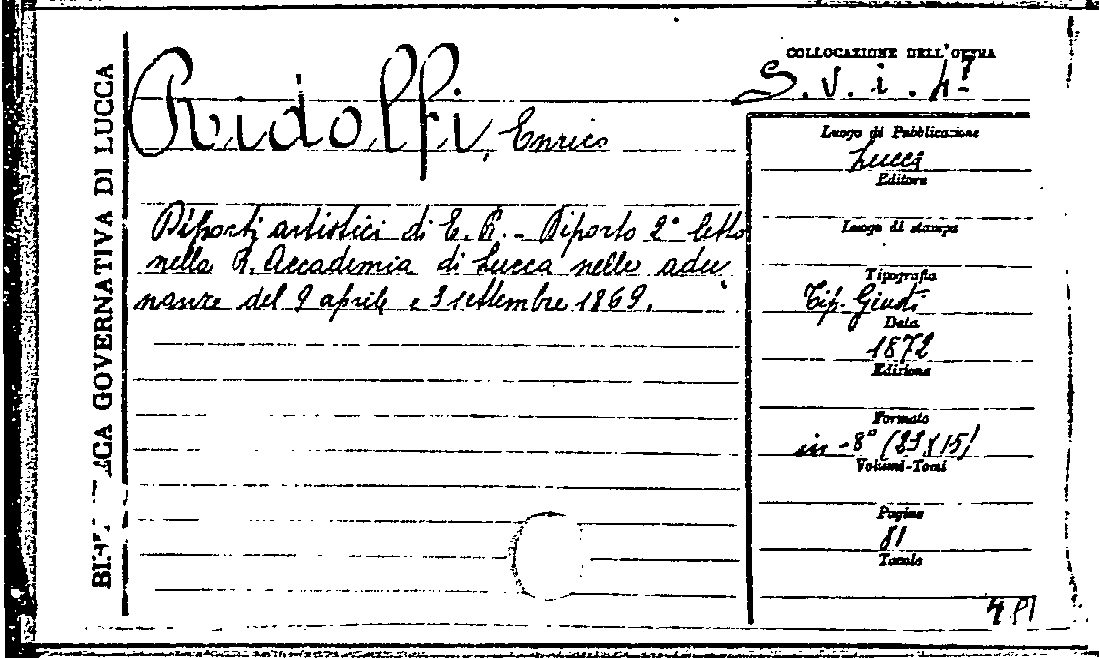 BIBLIOTECA GOVERNATIVA DI LUCCA
COLLOCAZIONE DELL'OPERA
S. v. i. 4.
Ridolfi, Enrico
Luogo di Pubblicazione
Lucca
Editore
Diporti artistici di E. R. - Diporto 2° letto
nella R. Accademia di Lucca nelle adu
nanze del 9 aprile e 3 settembre 1869.
Luogo di stampa
Tipografia
Tip. Giusti
Data
1872
Edizione
Formato
in-8° (23X15)
Volumi-Tomi
Pagine
81
Tavole